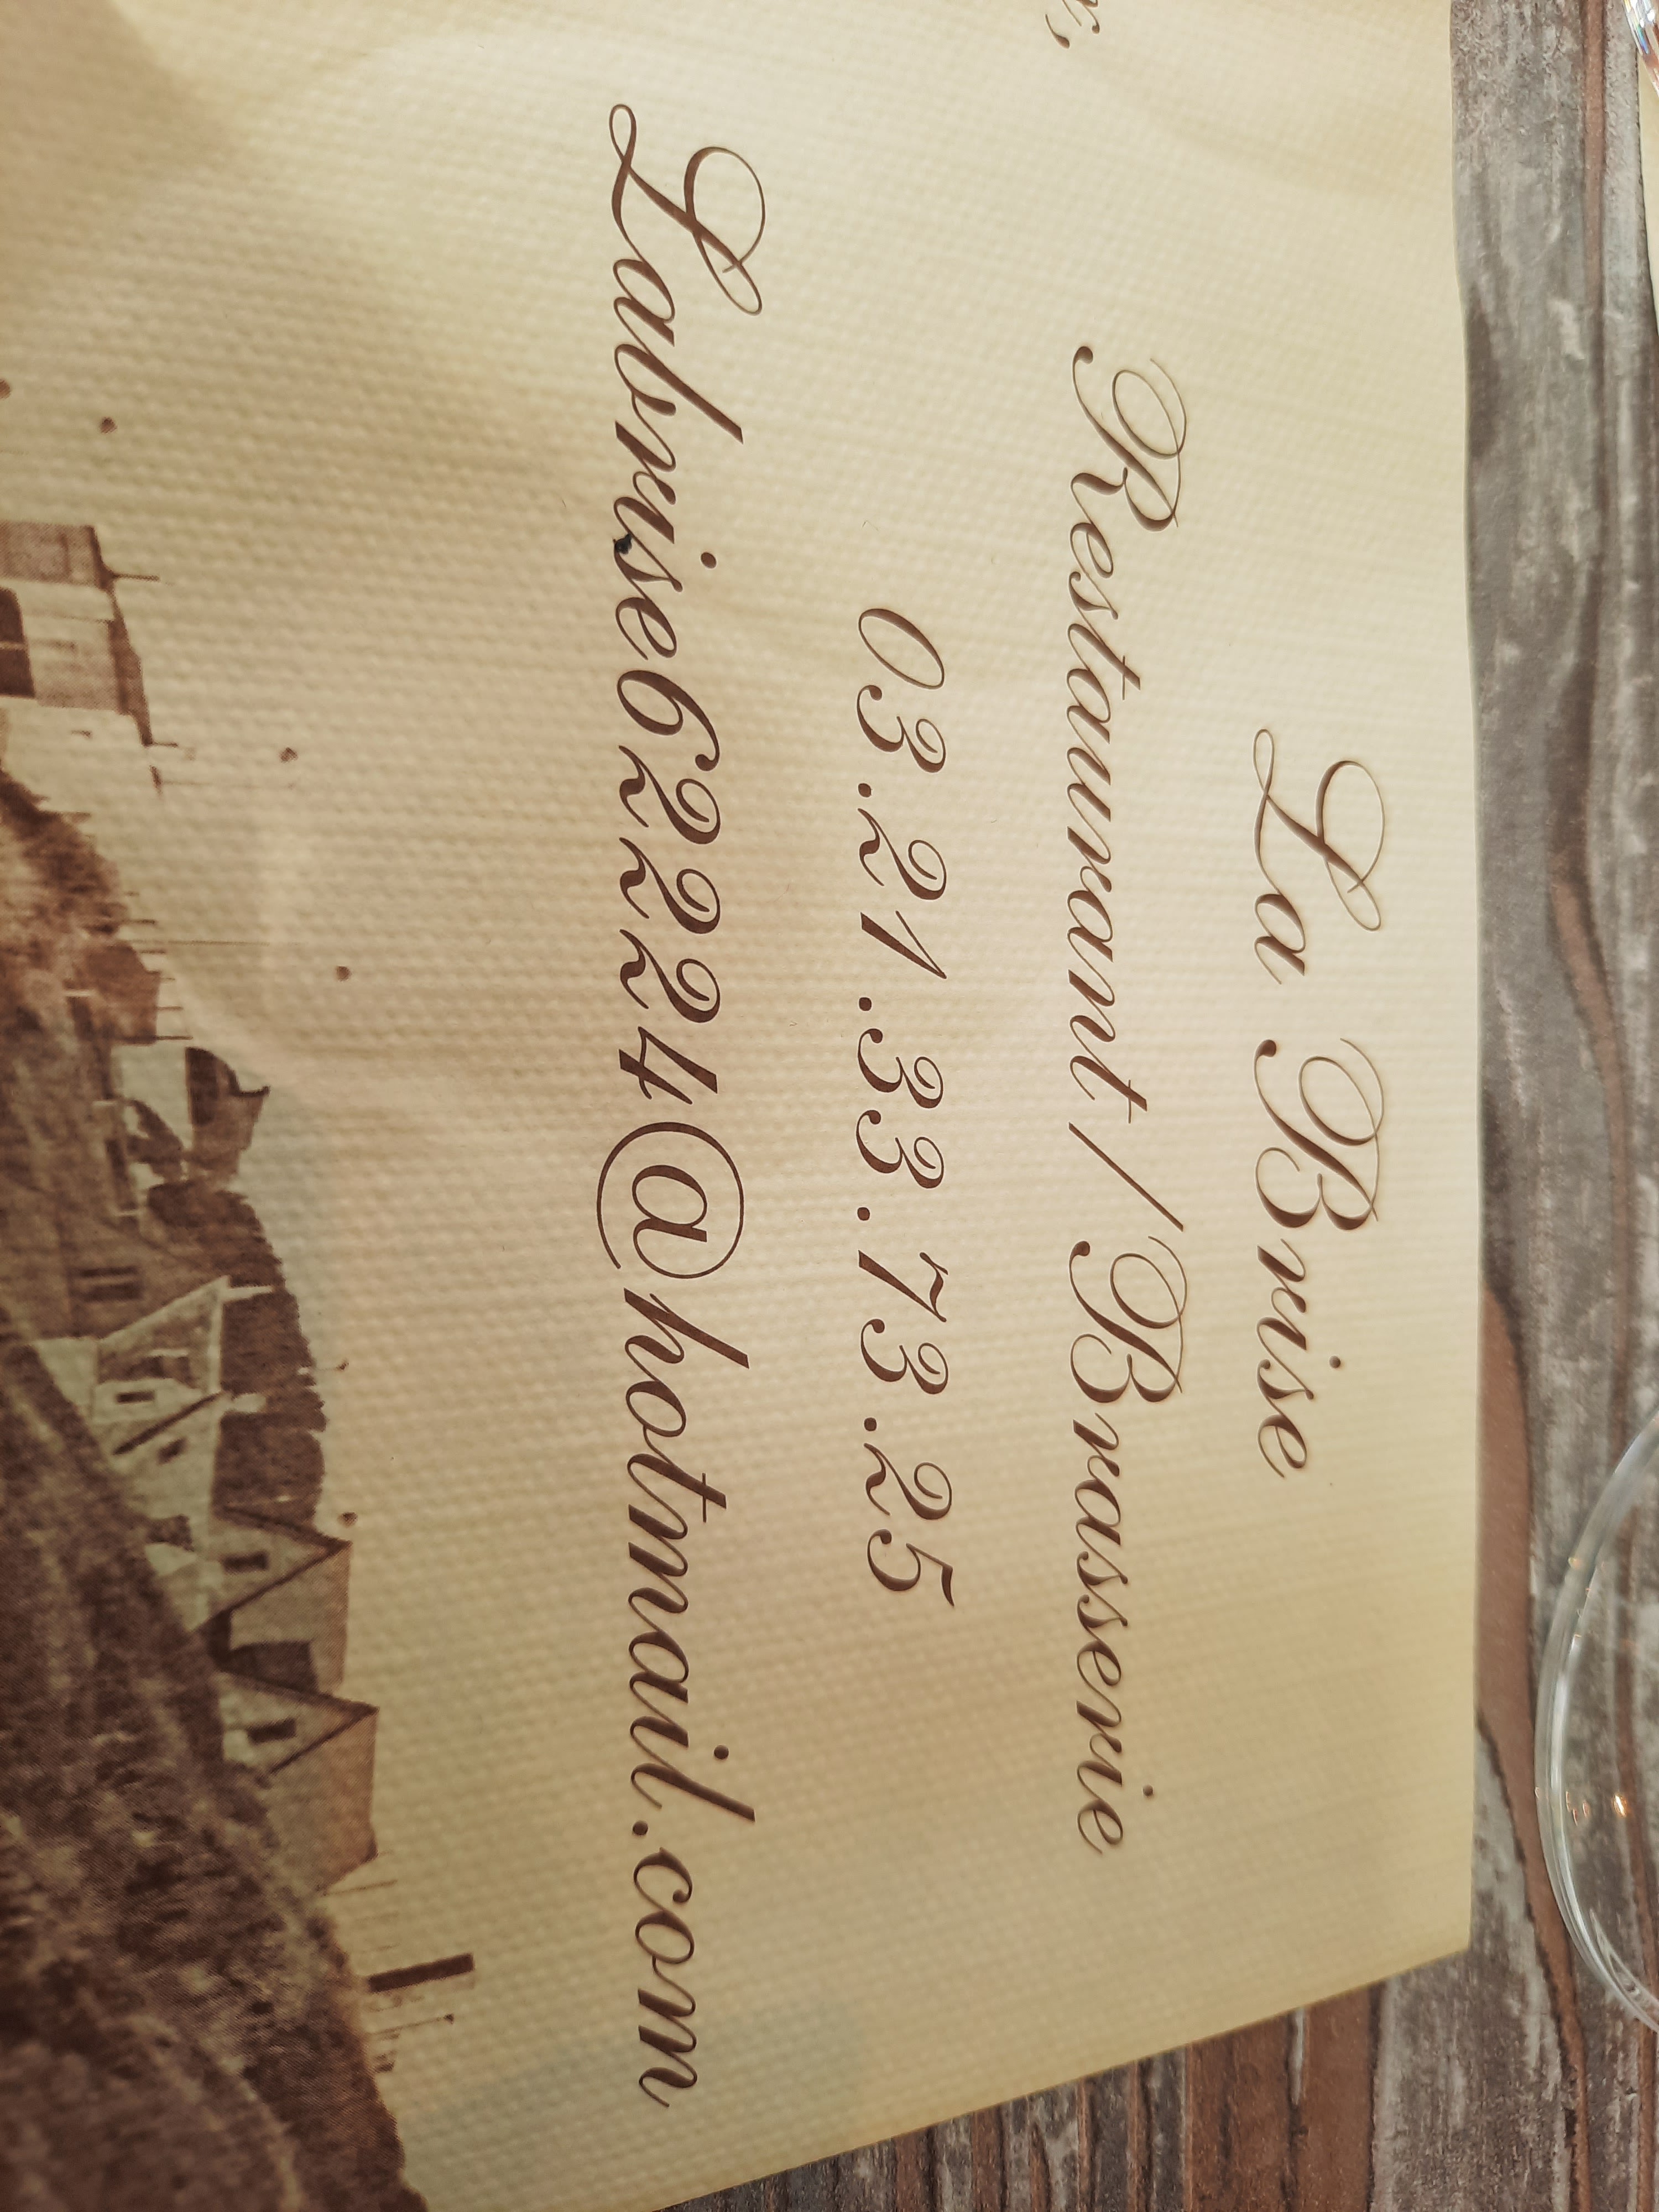 La Brise
Restaurant / Brasserie
03.21.33.73.25
Labrise62224@hotmail.com